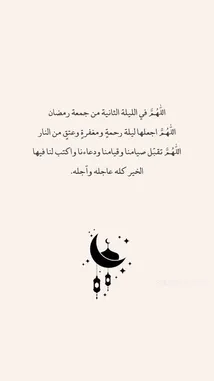 اللّٰهُمَّ في الليلة الثانية من جمعة رمضان
اللّٰهُمَّ اجعلها ليلة رحمةٍ ومغفرةٍ وعتقٍ من النار
اللّٰهُمَّ تقبّل صيامنا وقيامنا ودعاءنا واكتب لنا فيها
الخير كله عاجله وآجله.